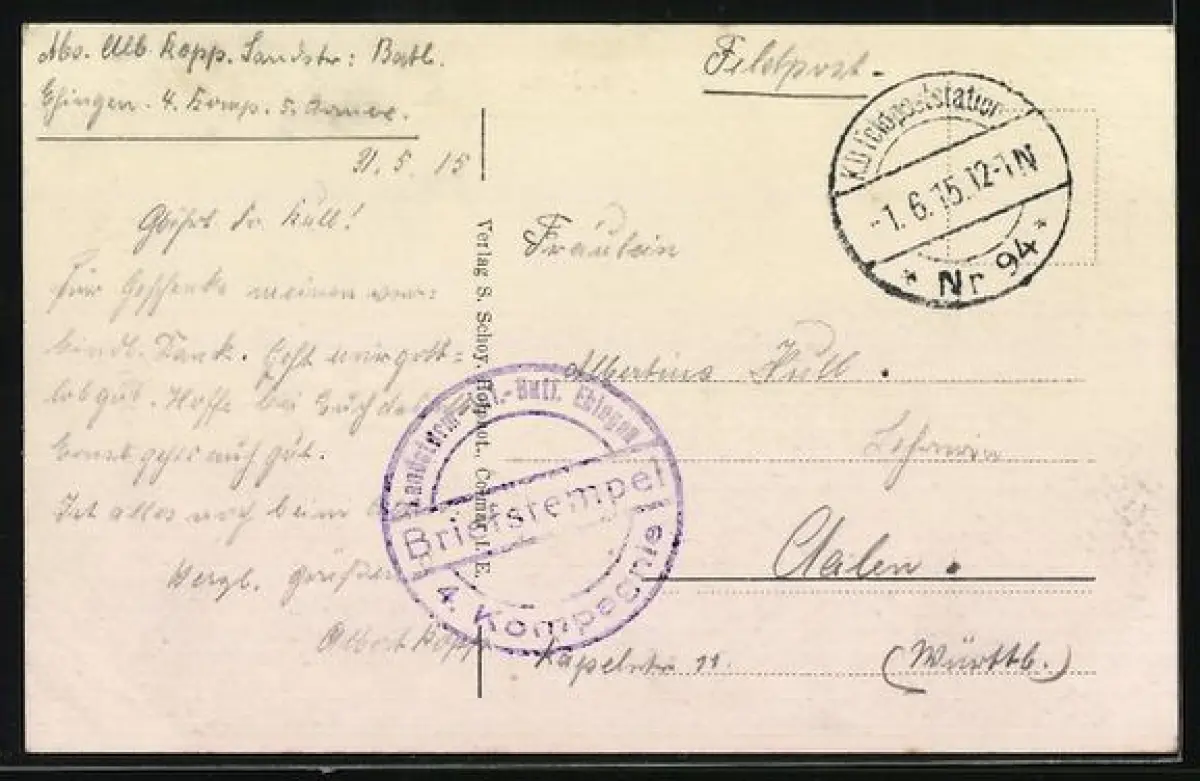 Abs. Alb. Kopp. Landstr: Batl.
Ehingen. 4. Komp. 5. Armee.
31. 5. 15
Für Geschenke meinen ver=
bindl. Dank. Geht mir gott=
lob gut. Hoffe bei Euch
geht's auch gut.
Ist alles noch beim
Hergl. Grüßen
Albert Kopp
Feldpost.
K.D. Feldpoststation
-1.6.15.12-1N
* Nr 94 *
Fräulein
Albertine Kull.
Lehrerin
Aalen.
Kapelstr. 11. (Württb.)
Verlag S. Schoy, Hofphot., Colmar i. E.
Landsturm-Inf.-Batl. Ehingen
Briefstempel
4. Kompagnie